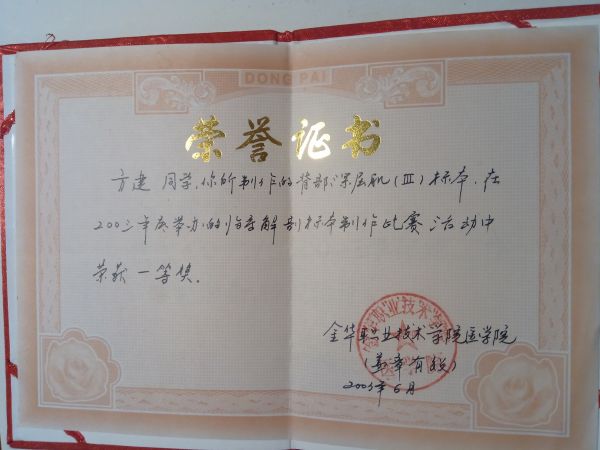 DONG PAI
荣誉证书
方建 同学,你所制作的背部深层肌(Ⅲ)标本,在
2003年度举办的 解剖标本制作比赛活动中
荣获一等奖。
金华职业技术学院医学院
(盖章有效)
6月